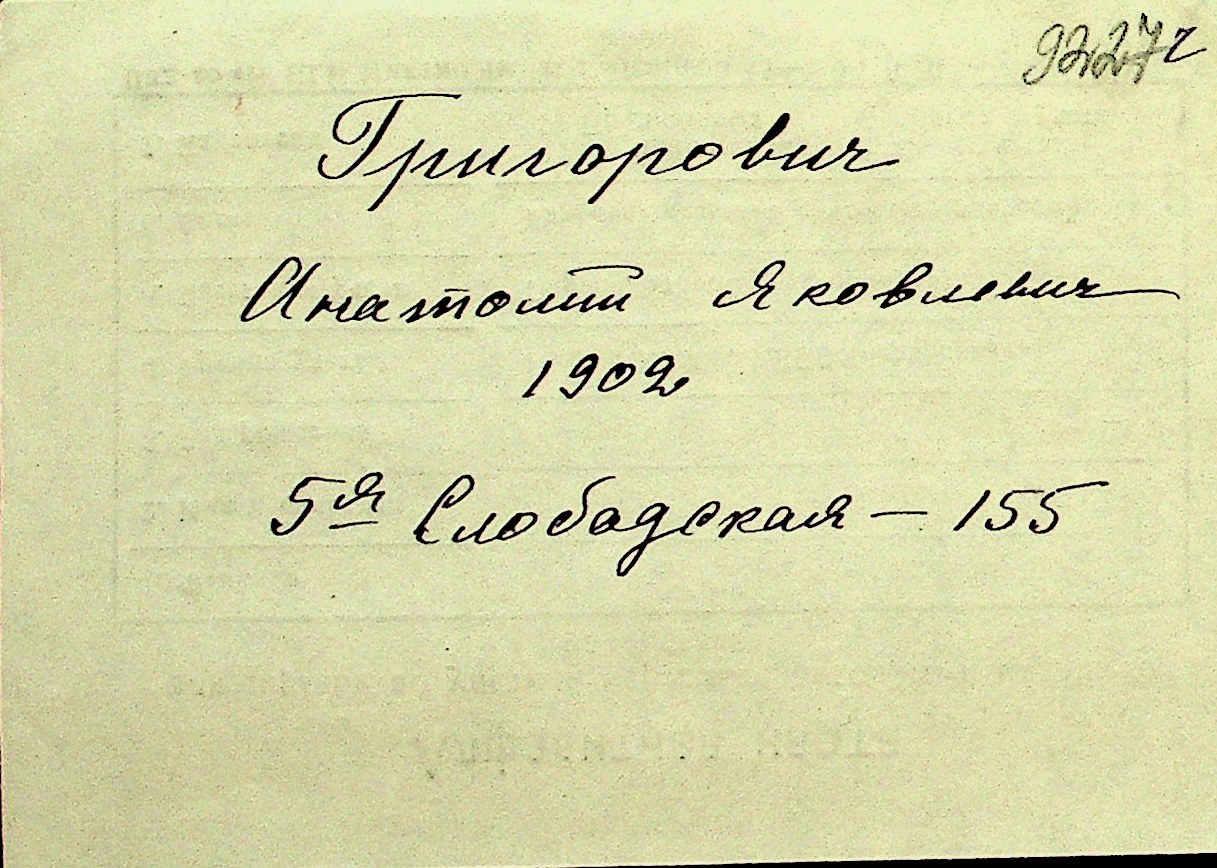 9227г
Григорович
Анатолий Яковлевич
1902
5я Слободская – 155